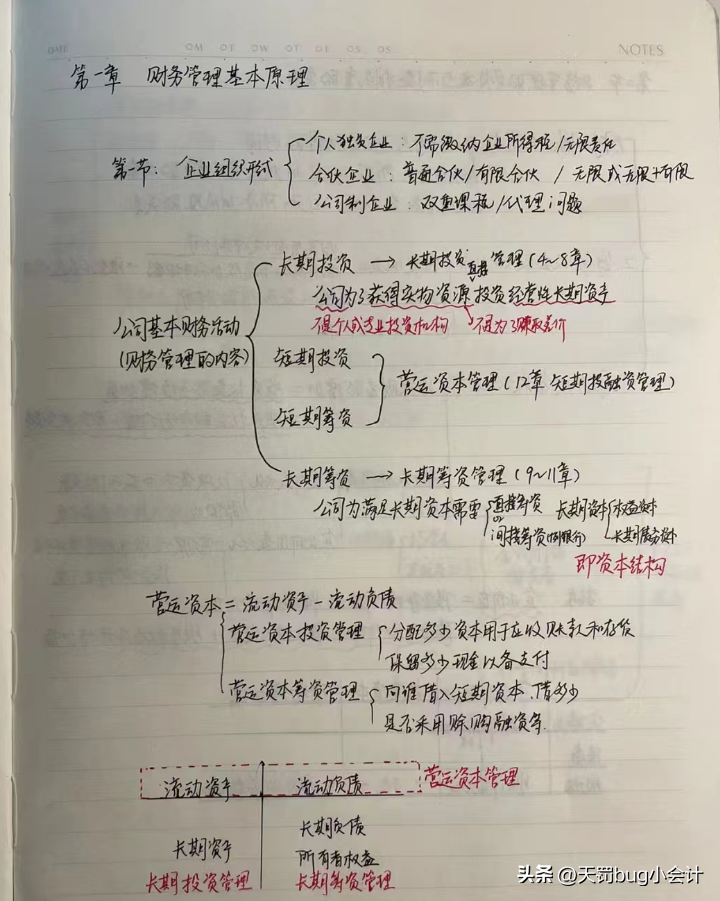 DATE
NOTES
第一章 财务管理基本原理
第一节: 企业组织形式
个人独资企业: 不需缴纳企业所得税/无限责任
合伙企业: 普通合伙/有限合伙 / 无限或无限+有限
公司制企业: 双重课税/代理问题
公司基本财务活动
(财务管理的内容)
长期投资 → 长期投资管理(4~8章)
直接
公司为了获得实物资源 投资经营性长期资产
不是个人或专业投资机构 不是为了赚取差价
短期投资
短期筹资
营运资本管理(12章 短期投融资管理)
长期筹资 → 长期筹资管理(9~11章)
公司为满足长期资本需要
直接筹资
or
间接筹资(如银行)
长期资本
权益资本
长期债务资本
即资本结构
营运资本=流动资产-流动负债
营运资本投资管理
分配多少资本用于应收账款和存货
保留多少现金以备支付
营运资本筹资管理
向谁借入短期资本、借多少
是否采用赊购融资等.
流动资产 流动负债 营运资本管理
长期负债
长期资产 所有者权益
长期投资管理 长期筹资管理
头条 @天罚bug小会计